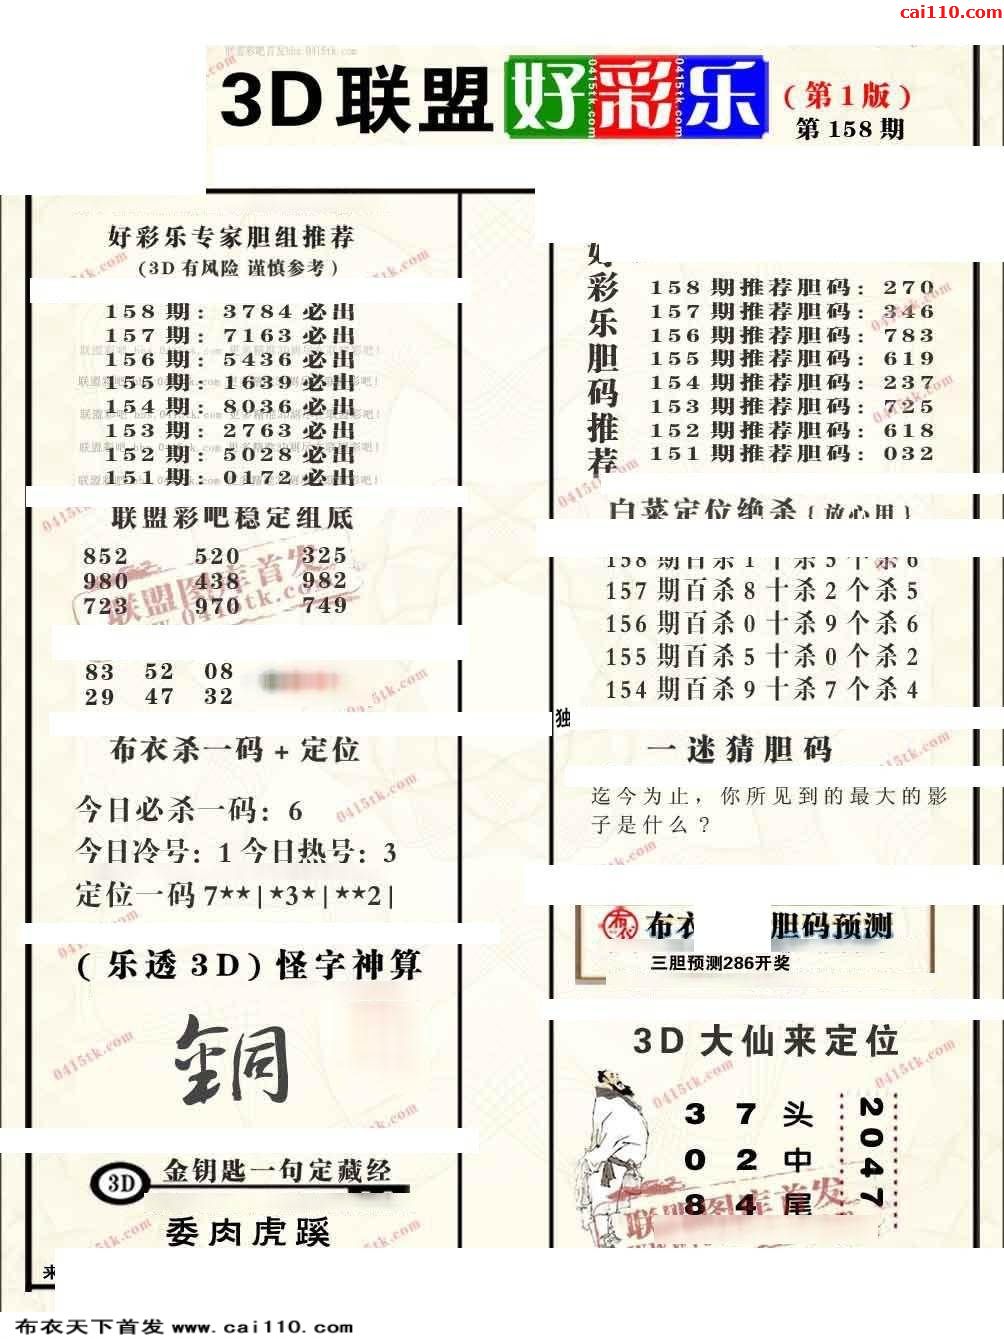 cai110.com
3D联盟好彩乐
(第1版)
第158期
好彩乐专家胆组推荐
(3D有风险 谨慎参考)
158期: 3784必出
157期: 7163必出
156期: 5436必出
155期: 1639必出
154期: 8036必出
153期: 2763必出
152期: 5028必出
151期: 0172必出
联盟彩吧稳定组底
852 520 325
980 438 982
723 970 749
83 52 08
29 47 32
布衣杀一码+定位
今日必杀一码: 6
今日冷号: 1 今日热号: 3
定位一码 7**|*3*|**2|
(乐透3D)怪字神算
銅
3D 金钥匙一句定藏经
委肉虎蹊
来
好彩乐胆码推荐
158期推荐胆码: 270
157期推荐胆码: 346
156期推荐胆码: 783
155期推荐胆码: 619
154期推荐胆码: 237
153期推荐胆码: 725
152期推荐胆码: 618
151期推荐胆码: 032
白菜定位绝杀{放心用}
158期百杀1十杀5个杀6
157期百杀8十杀2个杀5
156期百杀0十杀9个杀6
155期百杀5十杀0个杀2
154期百杀9十杀7个杀4
独
一迷猜胆码
迄今为止，你所见到的最大的影
子是什么?
布衣 胆码预测
三胆预测286开奖
3D大仙来定位
3 7 头
0 2 中
8 4 尾
2047
联盟图库首发
0415tk.com
布衣天下首发 www.cai110.com